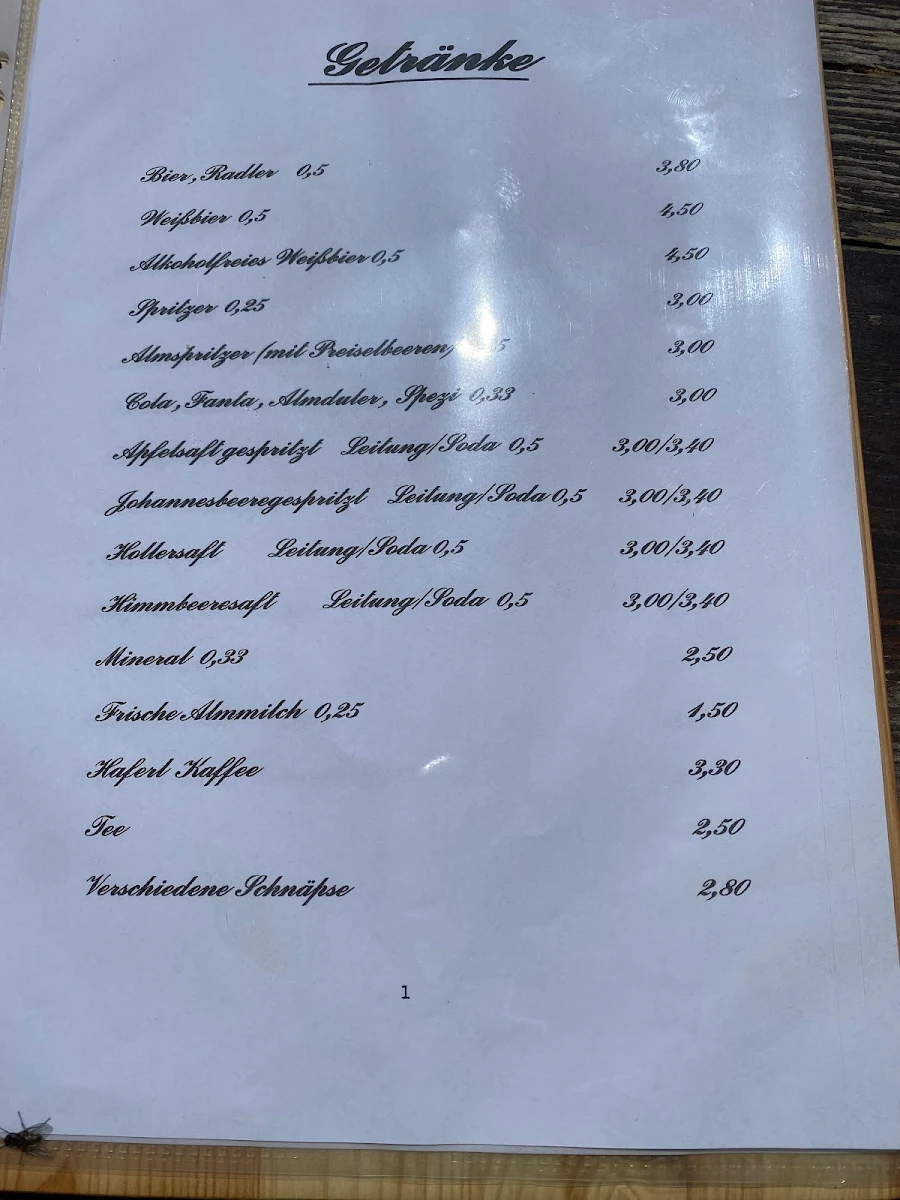 Getränke
Bier, Radler 0,5 3,80
Weißbier 0,5 4,50
Alkoholfreies Weißbier 0,5 4,50
Spritzer 0,25 3,00
Almspritzer (mit Preiselbeeren) 3,00
Cola, Fanta, Almduler, Spezi 0,33 3,00
Apfelsaft gespritzt Leitung/Soda 0,5 3,00/3,40
Johannesbeeregespritzt Leitung/Soda 0,5 3,00/3,40
Hollersaft Leitung/Soda 0,5 3,00/3,40
Himmbeeresaft Leitung/Soda 0,5 3,00/3,40
Mineral 0,33 2,50
Frische Almmilch 0,25 1,50
Haferl Kaffee 3,30
Tee 2,50
Verschiedene Schnäpse 2,80
1